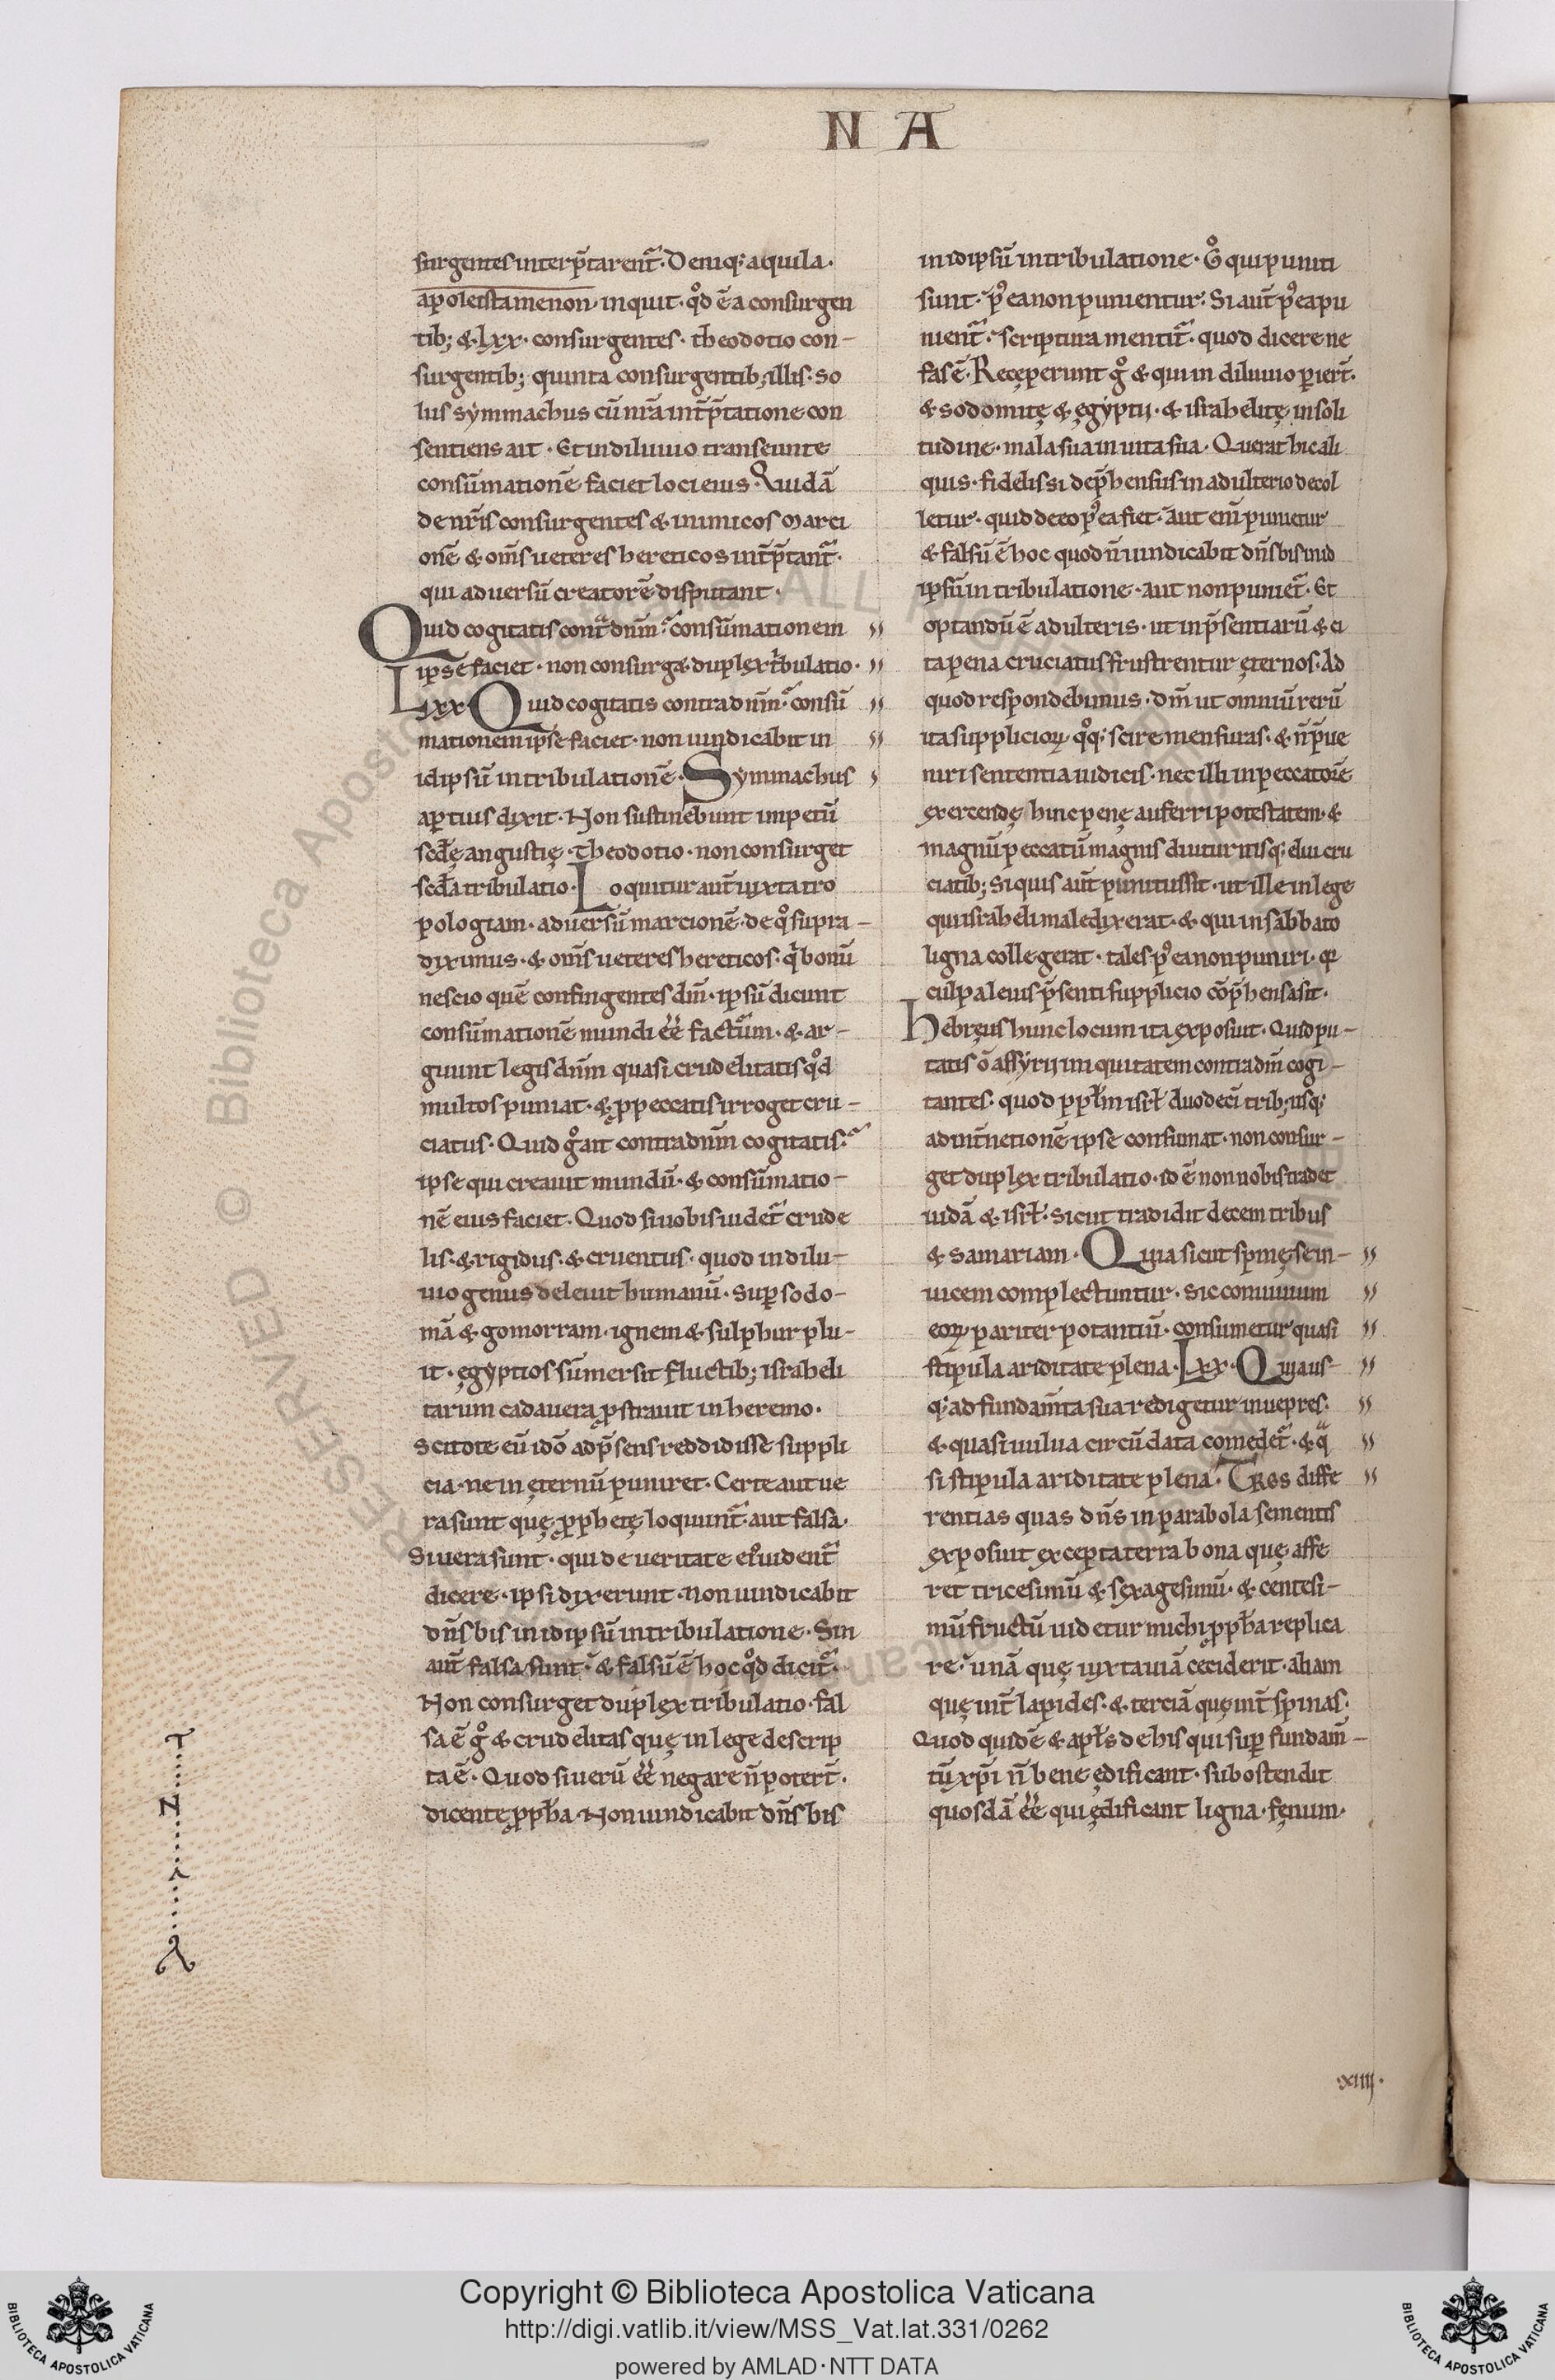 N A
surgentes interp̄tarent᷑. Deniq; aquila.
apoleistamenon. inquit. qd̊ ē a consurgen
tib; & lxx. consurgentes. theodotio con-
surgentib; quinta consurgentib; illis. so
lus symmachus cū nr̄a int̄p̄tatione con
sentiens ait. Et in diluuio transeunte
consūmationē faciet loci eius. Quidā
de nr̄is consurgentes & inimicos marci
onē & om̄s ueteres hereticos int̄p̄tant᷑.
qui aduersū creatorē disputant.
Quid cogitatis cont̄ dnm̄. consūmationem
ipse faciet. non consurg& duplex tͥbulatio.
Lxx Quid cogitatis contra dnm̄. consū
mationem ipse faciet. non uindicabit in
idipsū in tribulationē. Symmachus
apertius dixit. Non sustinebunt impetū
scdȩ̄ angustię. theodotio. non consurget
scdā tribulatio. Loquitur aut̄ iuxta tro
pologiam. aduersū marcionē. de qͦ supra-
diximus. & om̄s ueteres hereticos. qͥ bonū
nescio quē confingentes dm̄. ipsū dicunt
consūmationē mundi ee̅ factum. & ar-
guunt legis dnm̄ quasi crudelitatis qd̊
multos puniat. & pp̱ peccatis irroget cru-
ciatus. Quid gͦ ait contra dnm̄ cogitatis.
ipse qui creauit mundū. & consūmatio-
nē eius faciet. Quod si uobis uidet᷑ crude
lis. & rigidus. & cruentus. quod in dilu-
uio genus deleuit humanū. super sodo-
mā & gomorram. ignem & sulphur plu-
it. ęgyptios sūmersit fluctib; israheli
tarum cadauera ꝓstrauit in heremo.
Scitote eū idō ad p̄sens reddidisse suppli
cia. ne in ęternū puniret. Certe aut ue
ra sunt quę ꝓphetę loquunt᷑. aut falsa.
Si uera sunt. qui de ueritate ei᷑ uident᷑
dicere. ipsi dixerunt. non uindicabit
dn̄s bis in idipsū in tribulatione. Sin
aut̄ falsa sunt. & falsū ē hoc qd̊ dicit᷑.
Non consurget duplex tribulatio. fal
sa ē gͦ & crudelitas quę in lege descrip
ta ē. Quod si uerū ee̅ negare n̄ potert̄.
dicente ꝓph̄a. Non uindicabit dn̄s bis
in idipsū in tribulatione. Gͦ qui puniti
sunt. pͦ ea non punientur. Si aut̄ pͦ ea pu
nient᷑. scriptura mentit᷑. quod dicere ne
fas ē. Receperunt gͦ & qui in diluuio perierт̄.
& sodomitę & ęgyptii. & israhelitę in soli
tudine. mala sua in uita sua. Querat hic ali
quis. fidelis si dep̄hensus in adulterio decol
letur. quid de eo pͦ ea fiet. Aut eni̅ punietur
& falsū ē hoc quod n̄ uindicabit dn̄s bis in id
ipsū in tribulatione. aut non puniet᷑. Et
optandū ē adulteris. ut in p̄sentiarū & ci
ta pena cruciatus frustrentur ęternos. Ad
quod respondebimus. dm̄ ut omniū rerū
ita supplicioꝝ qͦq; scire mensuras. & n̄ p̄ue
niri sententia iudicis. nec illi in peccatorē
exercendę hinc penę auferri potestatem. &
magnū peccatū magnis diuturnisq; dui cru
ciatib; Si quis aut̄ punitus sit. ut ille in lege
qui israheli maledixerat. & qui in sabbato
ligna collegerat. tales pͦ ea non puniri. qꝫ
culpa leuis p̄senti supplicio cōp̄hensa sit.
Hebręus hunc locum ita exposuit. Quid pu-
tatis ō assyrii iniquitatem contra dm̄ cogi-
tantes. quod ppl̄m isrl̄ duodeci̅ trib; usq;
ad int̄netionē ipse consumat. non consur-
get duplex tribulatio. id ē non uobis tradet
iudā & isrl̄. sicut tradidit decem tribus
& samariam. Quia sicut spinę se in-
uicem complectuntur. sic conuiuium
eoꝝ pariter potantiū. consumetur quasi
stipula ariditate plena. Lxx. Quia us-
q; ad fundam̄ta sua redigetur in uepres.
& quasi uulua circūdata comedet᷑. & qͣ
si stipula ariditate plena. Tres diffe
rentias quas dn̄s in parabola sementis
exposuit excepta terra bona quę affe
ret tricesimū & sexagesimū. & centesi-
mū fructū uidetur michi ꝓph̄a replica
re. unā quę iuxta uiā ceciderit. aliam
quę int̄ lapides. & terciā quę int̄ spinas.
Quod quidē & apl̄s de his qui super fundam̄-
tū xp̄i n̄ bene ędificant. subostendit
quosdā ee̅ qui ędificant ligna. fęnum.
xiiii.
Copyright © Biblioteca Apostolica Vaticana
http://digi.vatlib.it/view/MSS_Vat.lat.331/0262
powered by AMLAD · NTT DATA
BIBLIOTECA APOSTOLICA VATICANA
BIBLIOTECA APOSTOLICA VATICANA